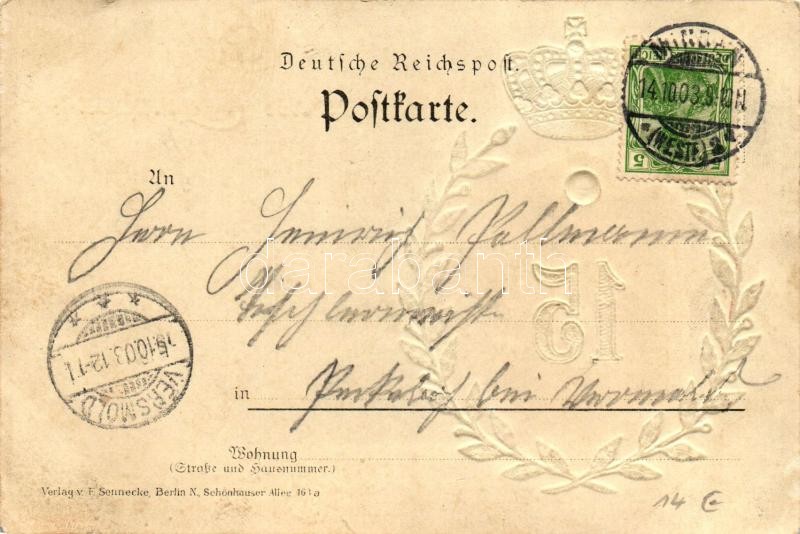 Deutsche Reichspost.
Postkarte.
MINDEN
14.10.03.9-10N
(WESTF)
5 5
An
Herrn Heinrich Pallmann
Tischlermeister
15
in bei Versmold
15.10.03.12-1
VERSMOLD
Wohnung
(Straße und Hausnummer.)
Verlag v. F. Sennecke, Berlin N., Schönhauser Allee 161a
14 €
darabanth